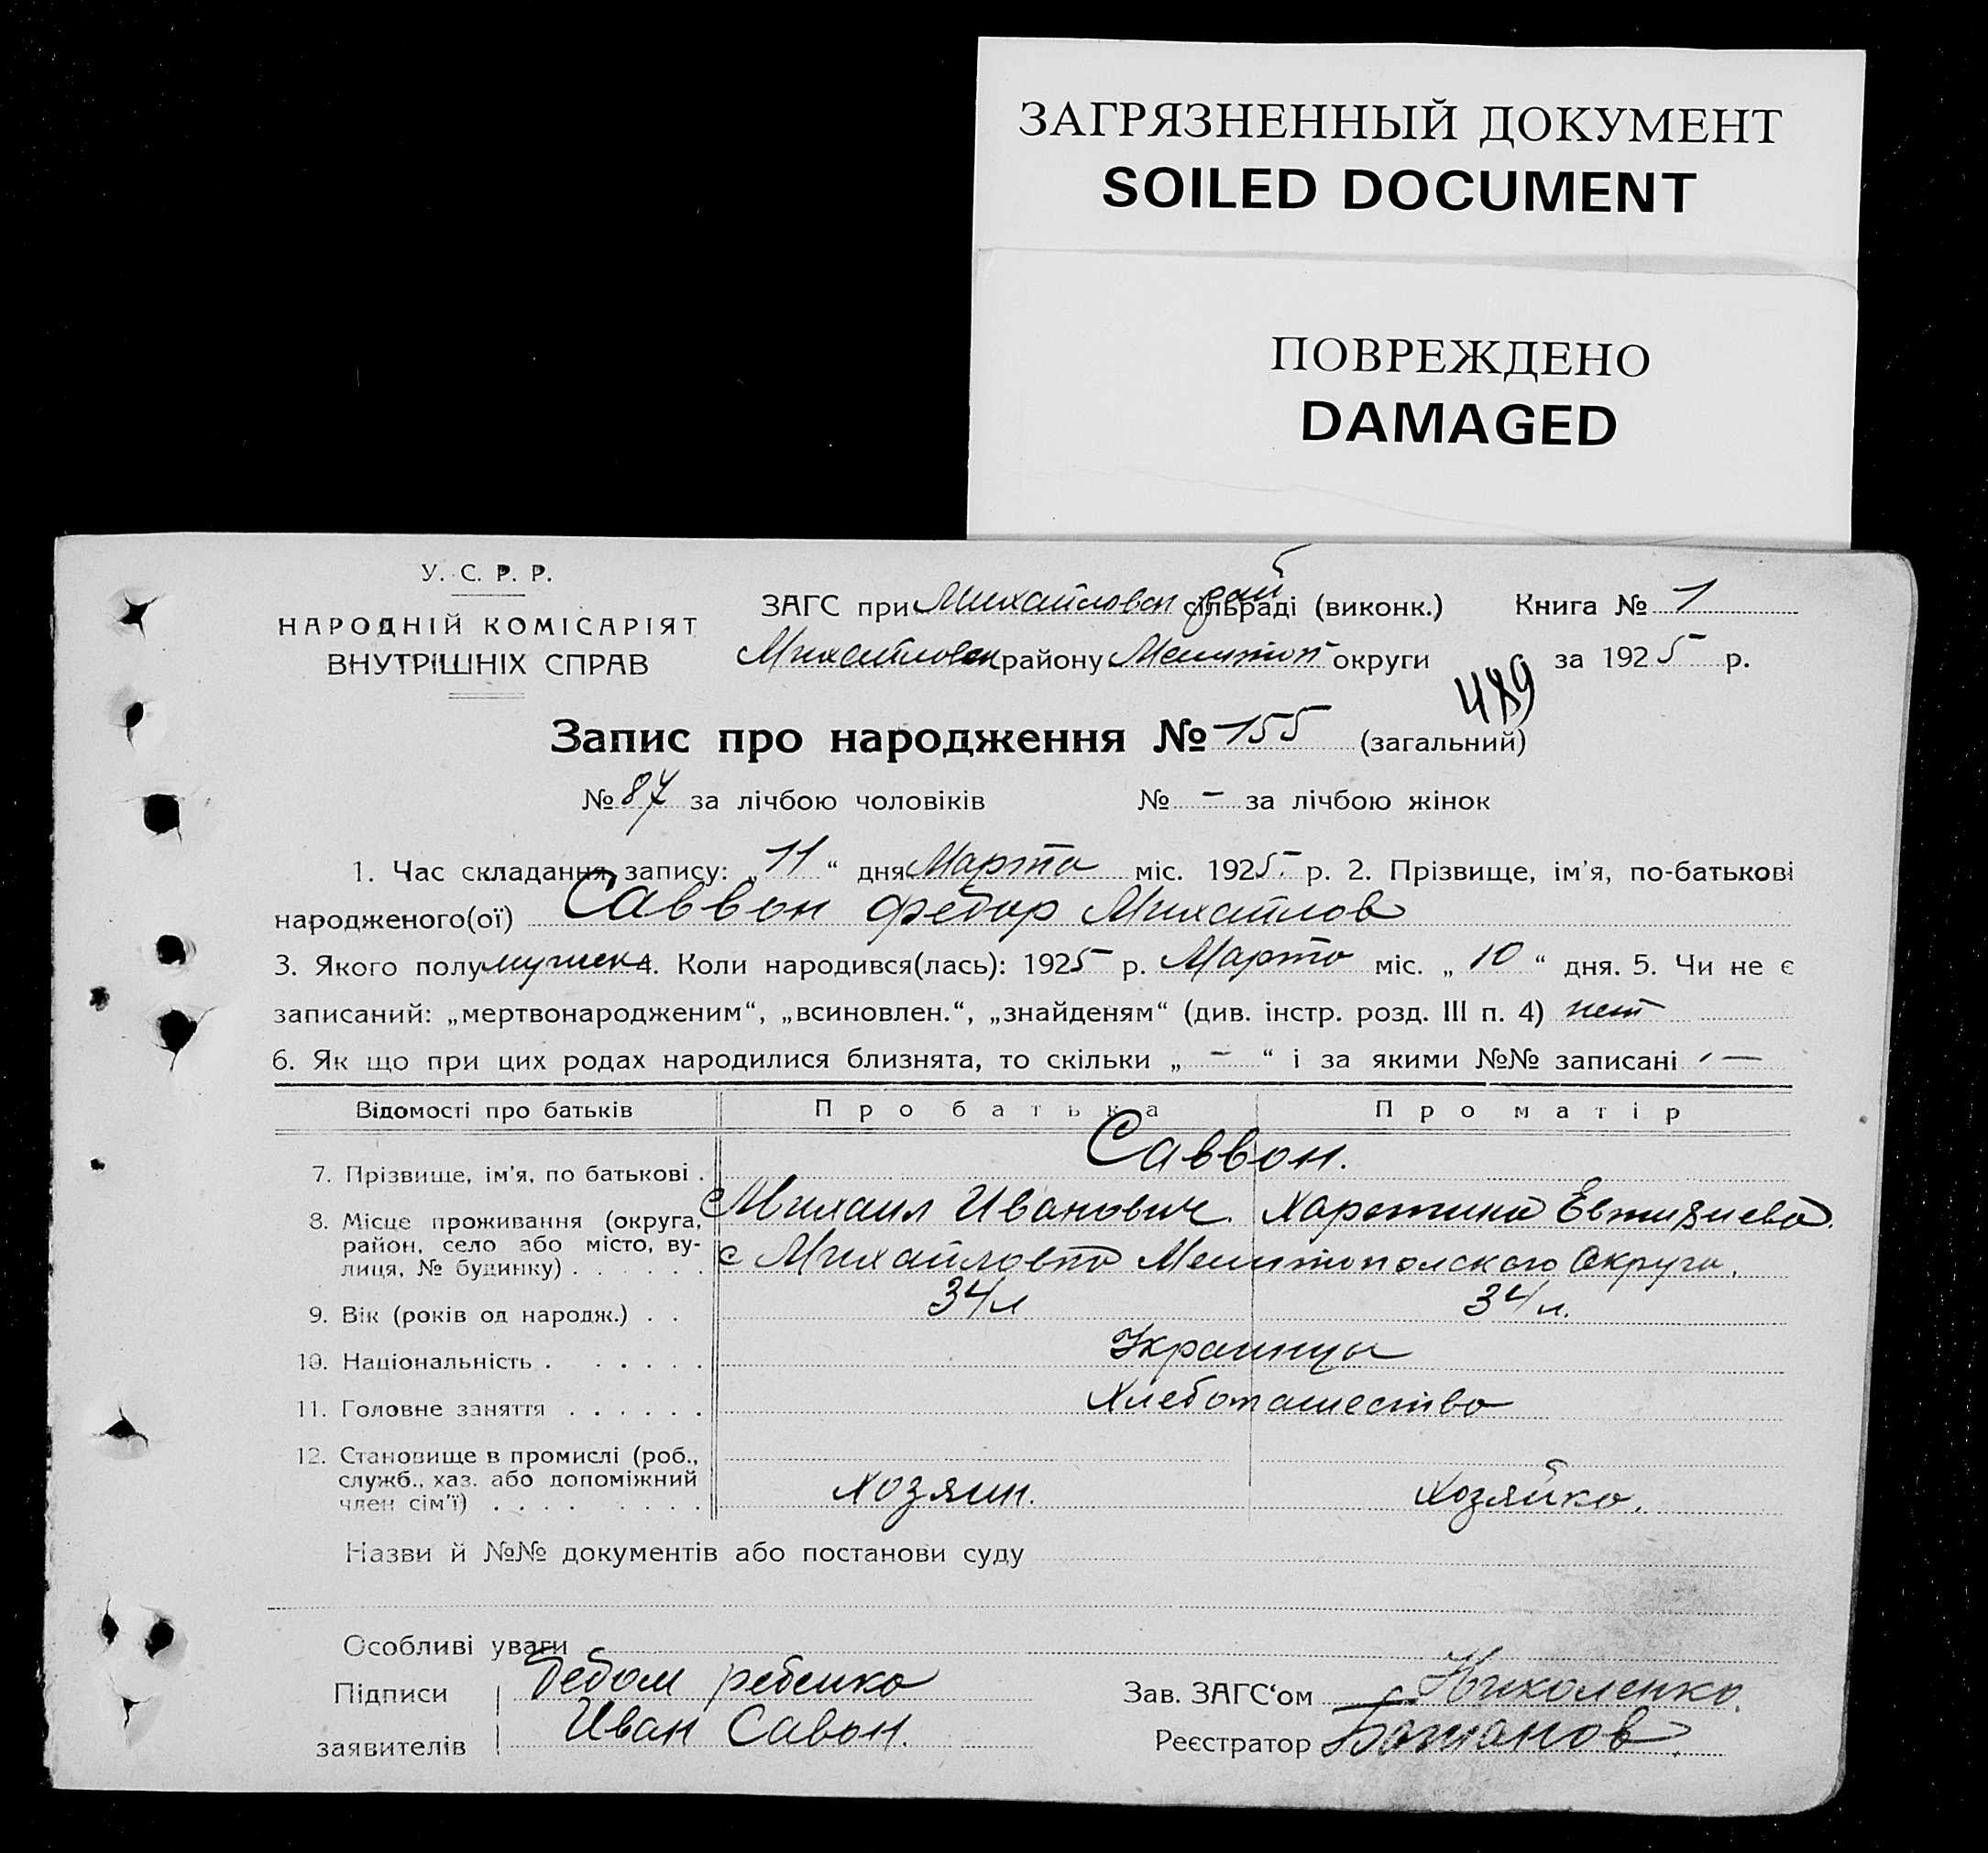 ЗАГРЯЗНЕННЫЙ ДОКУМЕНТ
SOILED DOCUMENT
ПОВРЕЖДЕНО
DAMAGED
У. С. Р. Р.
НАРОДНІЙ КОМІСАРІЯТ
ВНУТРІШНІХ СПРАВ
ЗАГС при Михайловск рай сільраді (виконк.) Книга № 1
Михайловск району Мелитоп округи за 1925 р.
489
Запис про народження № 155 (загальний)
№ 87 за лічбою чоловіків № – за лічбою жінок
1. Час складання запису: „11“ дня Марта міс. 1925 р. 2. Прізвище, ім'я, по-батькові
народженого(ої) Саввон Федор Михайлов
3. Якого полу мужск 4. Коли народився(лась): 1925 р. Марта міс. „10“ дня. 5. Чи не є
записаний: „мертвонародженим“, „всиновлен.“, „знайденям“ (див. інстр. розд. III п. 4) нет
6. Як що при цих родах народилися близнята, то скільки „ – “ і за якими №№ записані —
Відомості про батьків Про батька Про матір
7. Прізвище, ім'я, по батькові . Саввон.
Михаил Иванович. Харетина Евтизиева.
8. Місце проживання (округа, район, село або місто, вулиця, № будинку) . . . . . . с Михайловка Мелитопольского Округа.
9. Вік (років од народж.) . . 34 л 34 л.
10. Національність . . . . . . Украинцы
11. Головне заняття . . . . . . Хлебопашество
12. Становище в промислі (роб.,
служб., хаз. або допоміжний
член сім'ї) . . . . . . . . Хозяин. Хозяйка.
Назви й №№ документів або постанови суду
Особливі уваги
Підписи Дедом ребенка Зав. ЗАГС'ом Николенко.
заявителів Иван Савон. Реєстратор